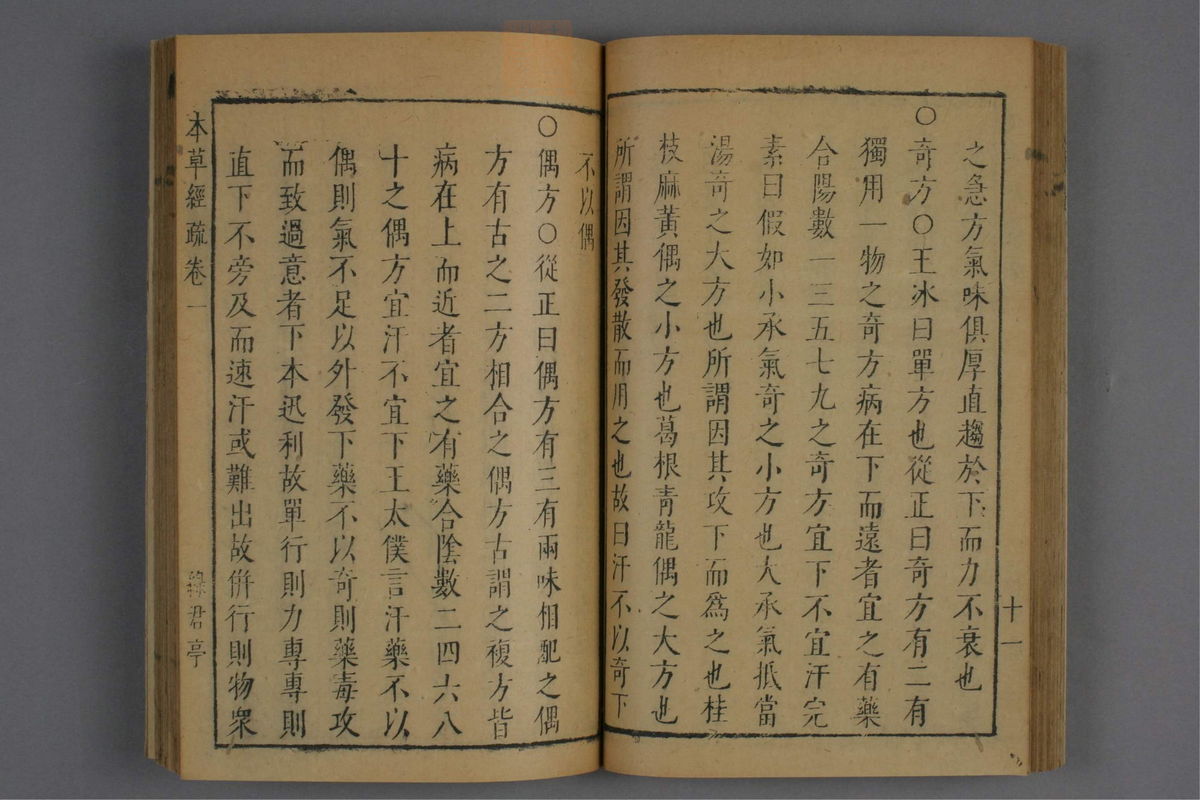 十一
之急方氣味俱厚直趨於下而力不衰也
○奇方○王冰曰單方也從正曰奇方有二有
獨用一物之奇方病在下而遠者宜之有藥
合陽數一三五七九之奇方宜下不宜汗完
素曰假如小承氣奇之小方也大承氣抵當
湯奇之大方也所謂因其攻下而爲之也桂
枝麻黃偶之小方也葛根靑龍偶之大方也
所謂因其發散而用之也故曰汗不以奇下
不以偶
○偶方○從正曰偶方有三有兩味相配之偶
方有古之二方相合之偶方古謂之複方皆
病在上而近者宜之有藥合陰數二四六八
十之偶方宜汗不宜下王太僕言汗藥不以
偶則氣不足以外發下藥不以奇則藥毒攻
而致過意者下本迅利故單行則力專專則
直下不旁及而速汗或難出故併行則物衆
本草經疏卷一
綠君亭